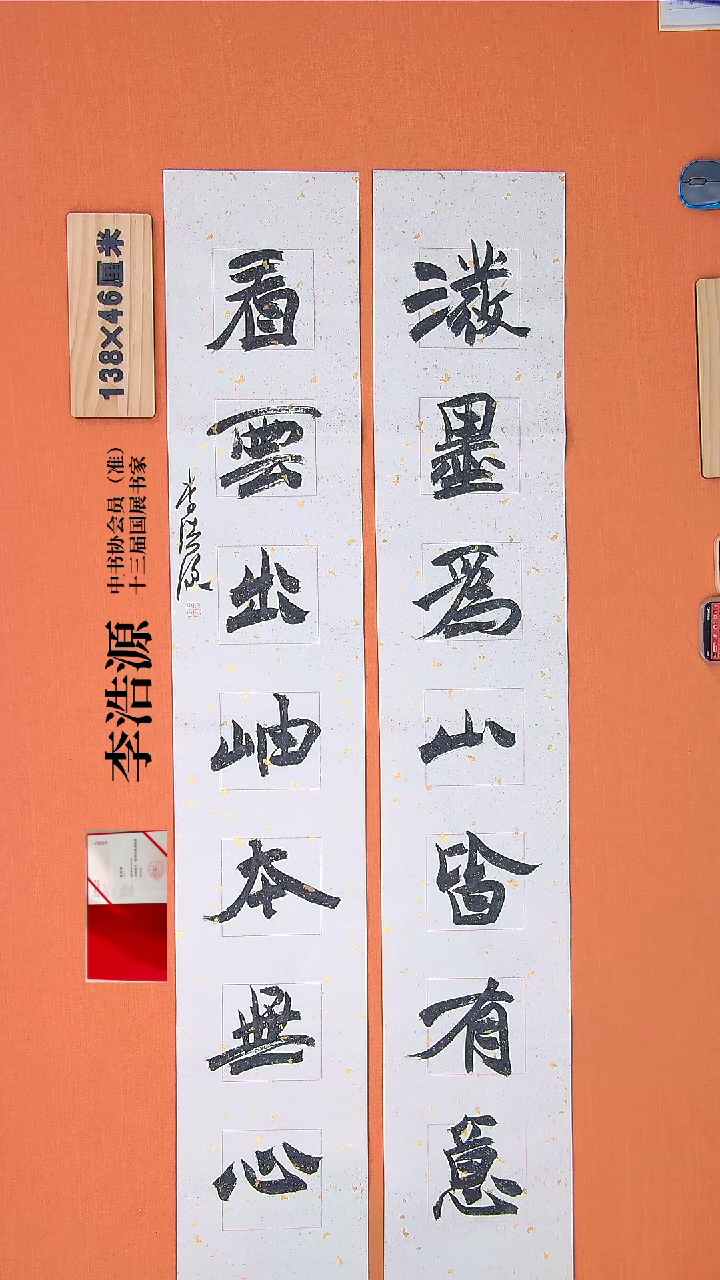 潑墨爲山皆有意
看雲出岫本無心
李浩源
138×46厘米
中书协会员（准）
十三届国展书家
李浩源